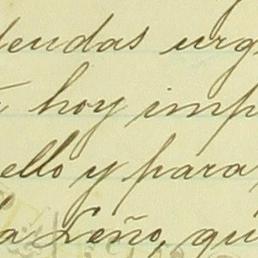 tendas urg
hoy imp
ello y para
la Leño, qu